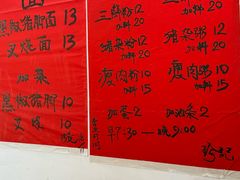 面
黑椒猪脚面 13
叉烧面 13
加菜
黑椒猪脚 10
叉烧 10
三鲜粉 12
加料 20
猪杂粉 12
加料 20
瘦肉粉 10
加料 15
加菜 2
早7:30—晚9:00
三鲜粥 12
加料 20
猪杂粥 12
加料 20
瘦肉粥 10
加料 15
加菜 2